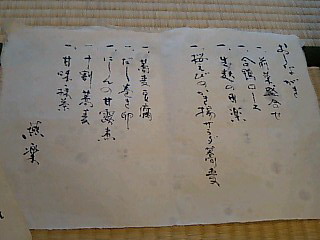 おしながき
一、前菜盛合せ
一、合鴨ロース
一、生麩の田楽
一、桜えびのかき揚せいろ蕎麦
一、蕎麦豆腐
一、だし巻き卵
一、にしんの甘露煮
一、十割蕎麦
一、甘味 抹茶